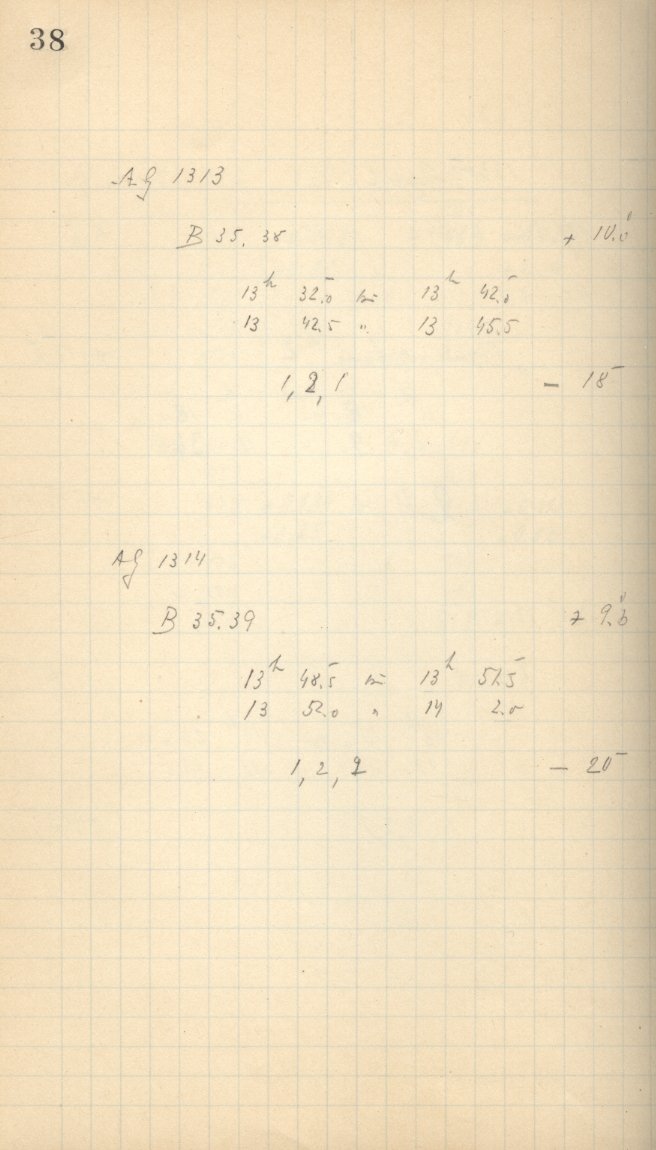 38
AG 1313
B 35.38 + 10.0
13h 32.0 bis 13h 42.0
13 42.5 " 13 45.5
1, 2, 1 - 18
AG 1314
B 35.39 + 9.6
13h 48.5 bis 13h 51.5
13 52.0 " 14 2.0
1, 2, 2 - 20